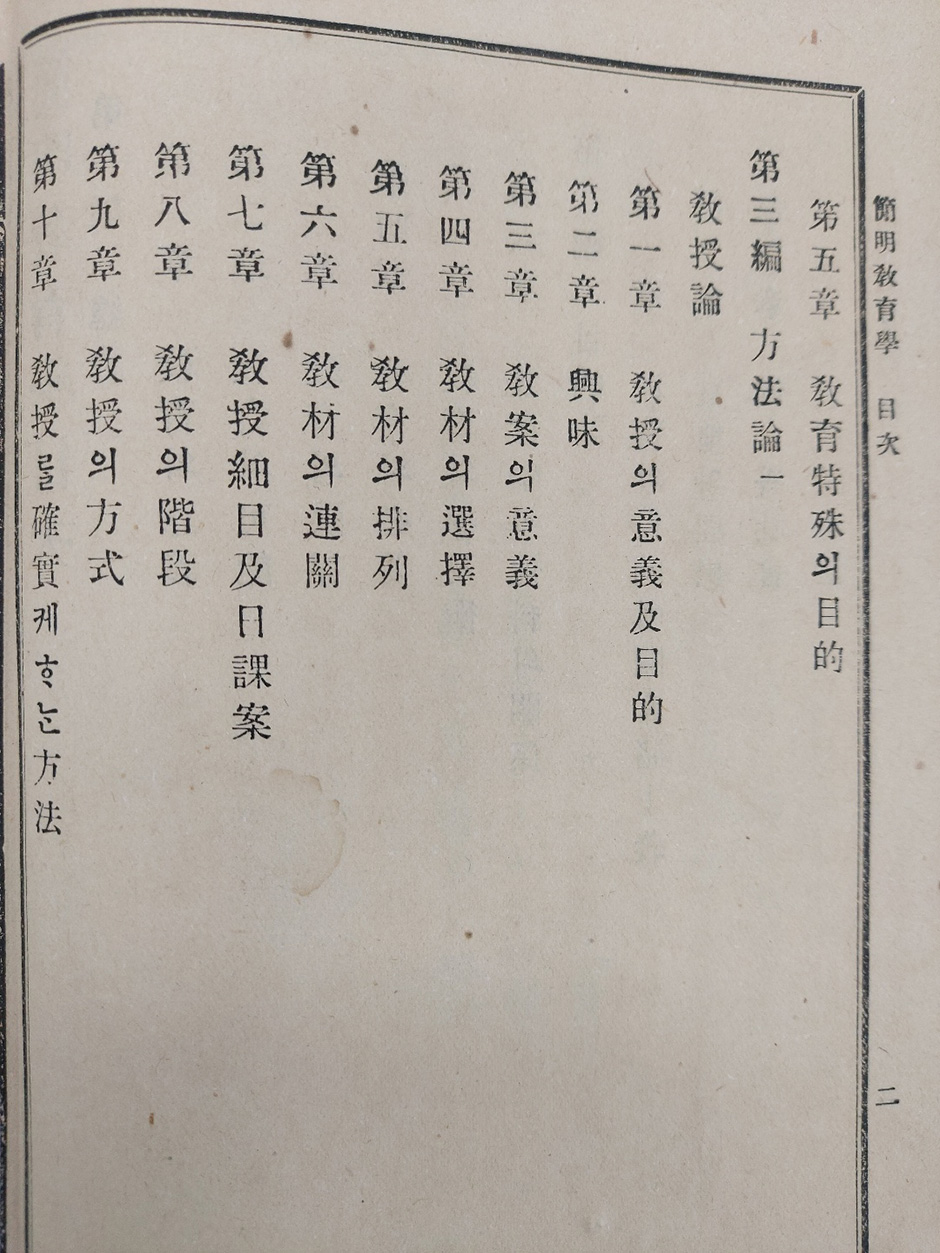 簡明敎育學 目次
二
第五章 敎育特殊의目的
第三編 方法論一
敎授論
第一章 敎授의意義及目的
第二章 興味
第三章 敎案의意義
第四章 敎材의選擇
第五章 敎材의排列
第六章 敎材의連關
第七章 敎授細目及日課案
第八章 敎授의階段
第九章 敎授의方式
第十章 敎授를確實케ᄒᆞᄂᆞᆫ方法